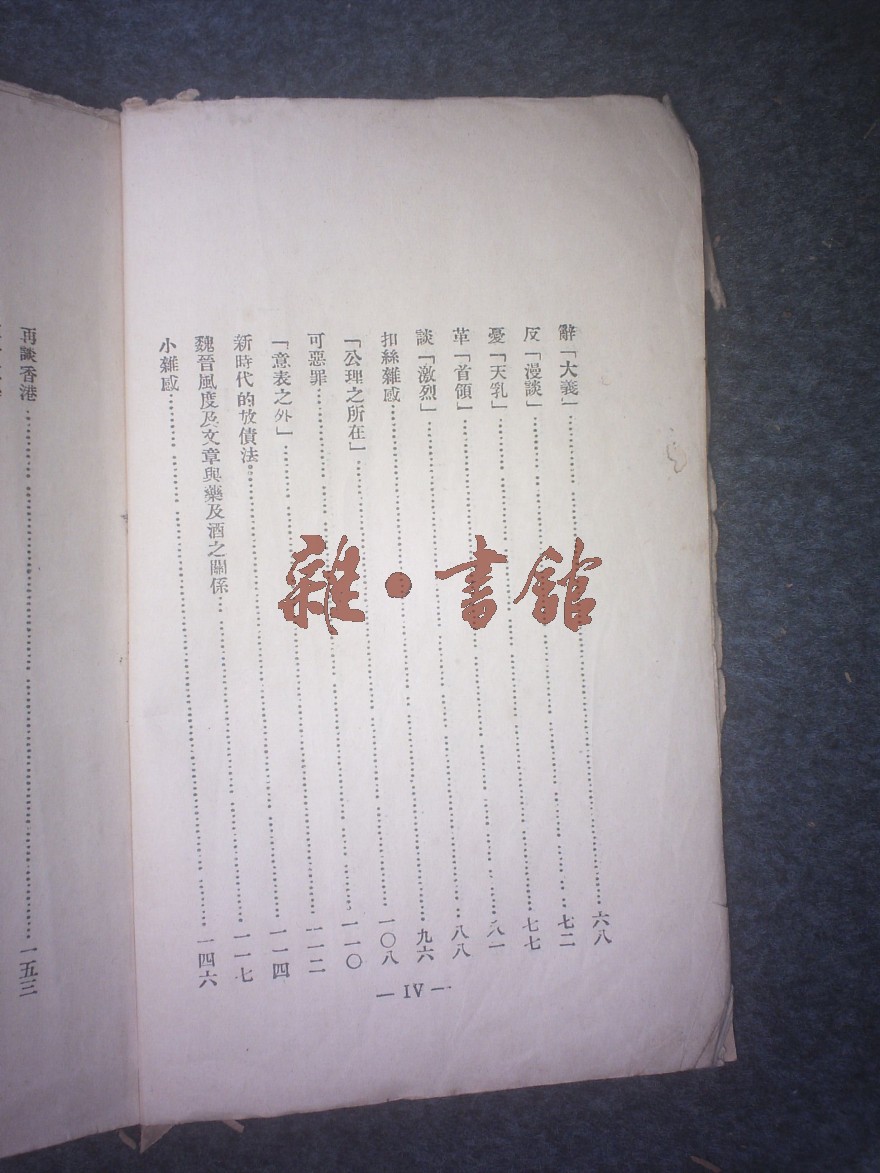 辭「大義」……六八
反「漫談」……七二
憂「天乳」……七七
革「首領」……八一
談「激烈」……八八
扣絲雜感……九六
「公理之所在」……一〇八
可惡罪……一一〇
「意表之外」……一一二
新時代的放債法……一一四
魏晉風度及文章與藥及酒之關係……一一七
小雜感……一四六
— IV —
再談香港……一五三
雜·書館